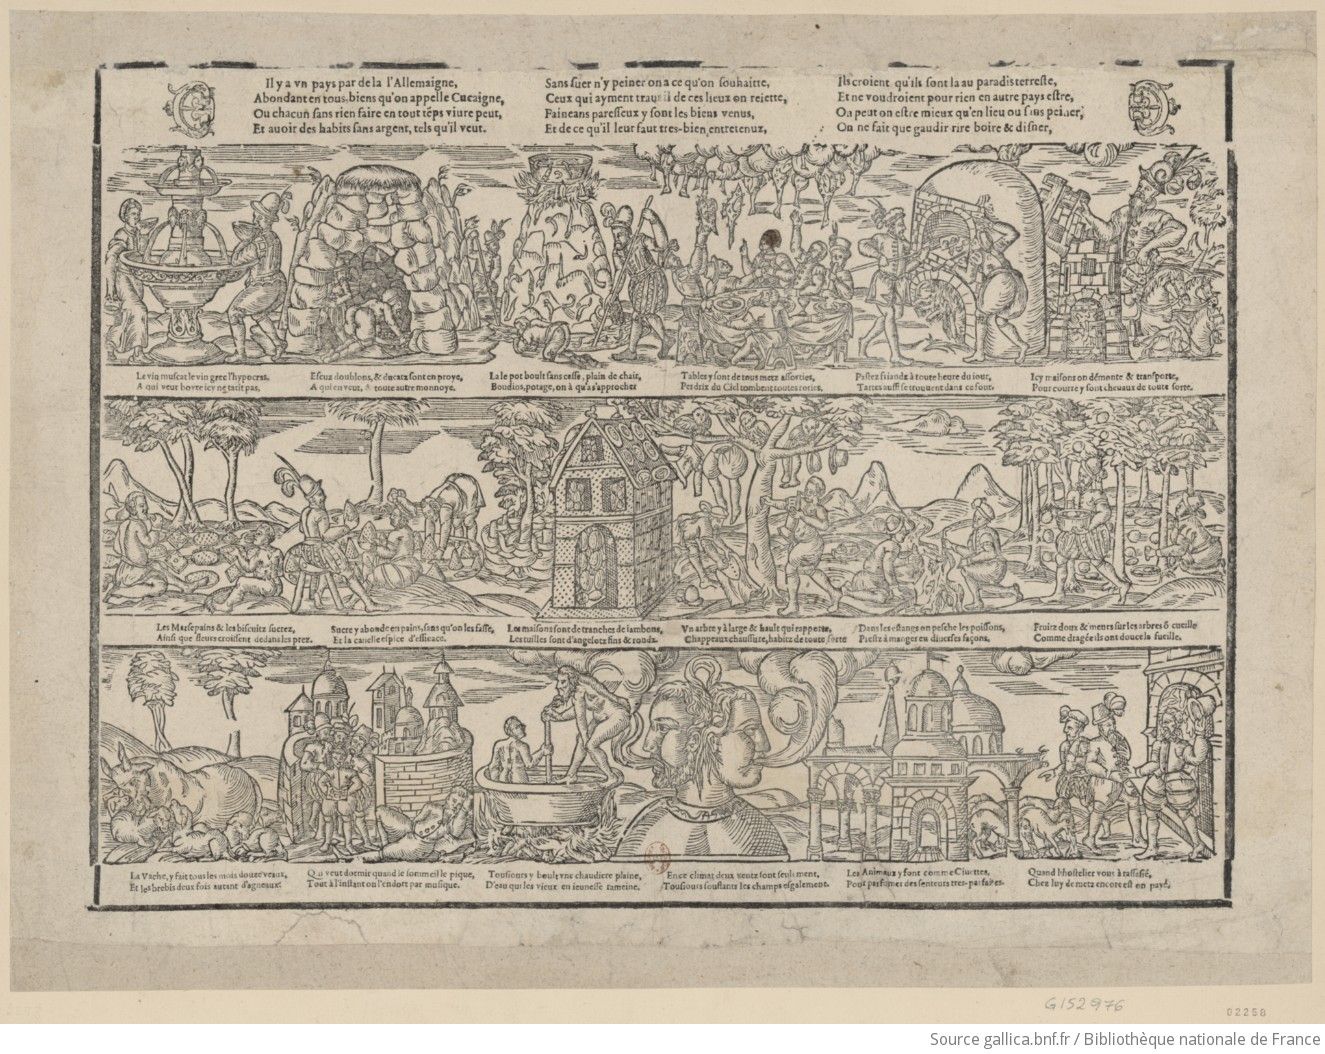 Il y a vn pays par dela l'Allemaigne,
Abondant en tous biens qu'on appelle Cucaigne,
Ou chacun sans rien faire en tout tẽps viure peut,
Et auoir des habits sans argent, tels qu'il veut.
Sans suer n'y peiner on a ce qu'on souhaitte,
Ceux qui ayment trauail de ces lieux on reiette,
Faineans paresseux y sont les biens venus,
Et de ce qu'il leur faut tres-bien entretenuz,
Ils croient qu'ils sont la au paradis terrestre,
Et ne voudroient pour rien en autre pays estre,
On peut on estre mieux qu'en lieu ou sans peiner,
On ne fait que gaudir rire boire & disner,
Le vin muscat le vin grec l'hypocras,
A qui veut boyre icy ne tarit pas.
Escuz doublons, & ducatz sont en proye,
A qui en veut, & toute autre monnoye.
La le pot boult sans cesse, plain de chair,
Boudins, potage, on à qu'a s'approcher
Tables y sont de tous metz assorties,
Perdrix du Ciel tombent toutes roties,
Pastez friandz à toute heure du iour,
Tartes aussi se trouuent dans ce four.
Icy maisons on démonte & transporte,
Pour courre y sont cheuaux de toute sorte.
Les Massepains & les biscuitz sucrez,
Ainsi que fleurs croissent dedans les prez.
Sucre y abonde en pains, sans qu'on les fasse,
Et la canelle espice d'efficace.
Les maisons sont de tranches de iambons,
Les tuilles sont d'angelotz fins & rondz.
Vn arbre y à large & hault qui rapporte,
Chappeaux chaussure, habitz de toute sorte
Dans les estangs on pesche les poissons,
Prestz à manger en diuerses façons,
Fruitz doux & meurs sur les arbres õ cueille
Comme dragée ils ont douce la fueille.
La Vache, y fait tous les mois douze veaux,
Et les brebis deux fois autant d'agneaux.
Qui veut dormir quand le sommeil le pique,
Tout à l'instant on l'endort par musique.
Tousiours y boult vne chaudiere plaine,
D'eau qui les vieux en ieunesse rameine.
En ce climat deux ventz sont seulement,
Tousiours soufflants les champs esgalement.
Les Animaux y sont comme Ciuettes,
Pour parfumer des senteurs tres-parfaites.
Quand l'hostelier vous à rassasié,
Chez luy de metz encore est on payé,
G152976
02258
Source gallica.bnf.fr / Bibliothèque nationale de France